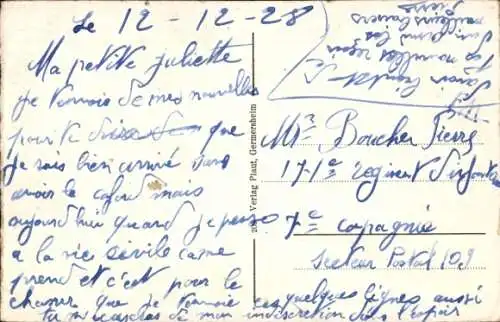 Le 12-12-28
Ma petite Juliette
je t'envois de mes nouvelles
pour te dire que
je suis bien arrivé sans
avoir le cafard mais
aujourd'hui quand je pense
a la vie sivile ca me
prend et c'est pour le
chasser que je t'envoie ces quelques lignes aussi
tu m'excuseras de mon indiscretion dans l'espoir
Verlag Plaut, Germersheim
Mr Boucher Pierre
171e regiment d'infanterie
7e copagnie
Secteur Postal 109
Pierre